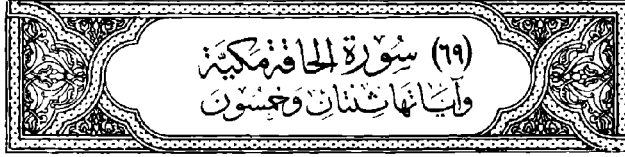 (٦٩) سُورَةُ الحَاقَّةِ مَكِيَّة
وَآيَاتُهَا ثِنْتَانِ وَخَمْسُونَ